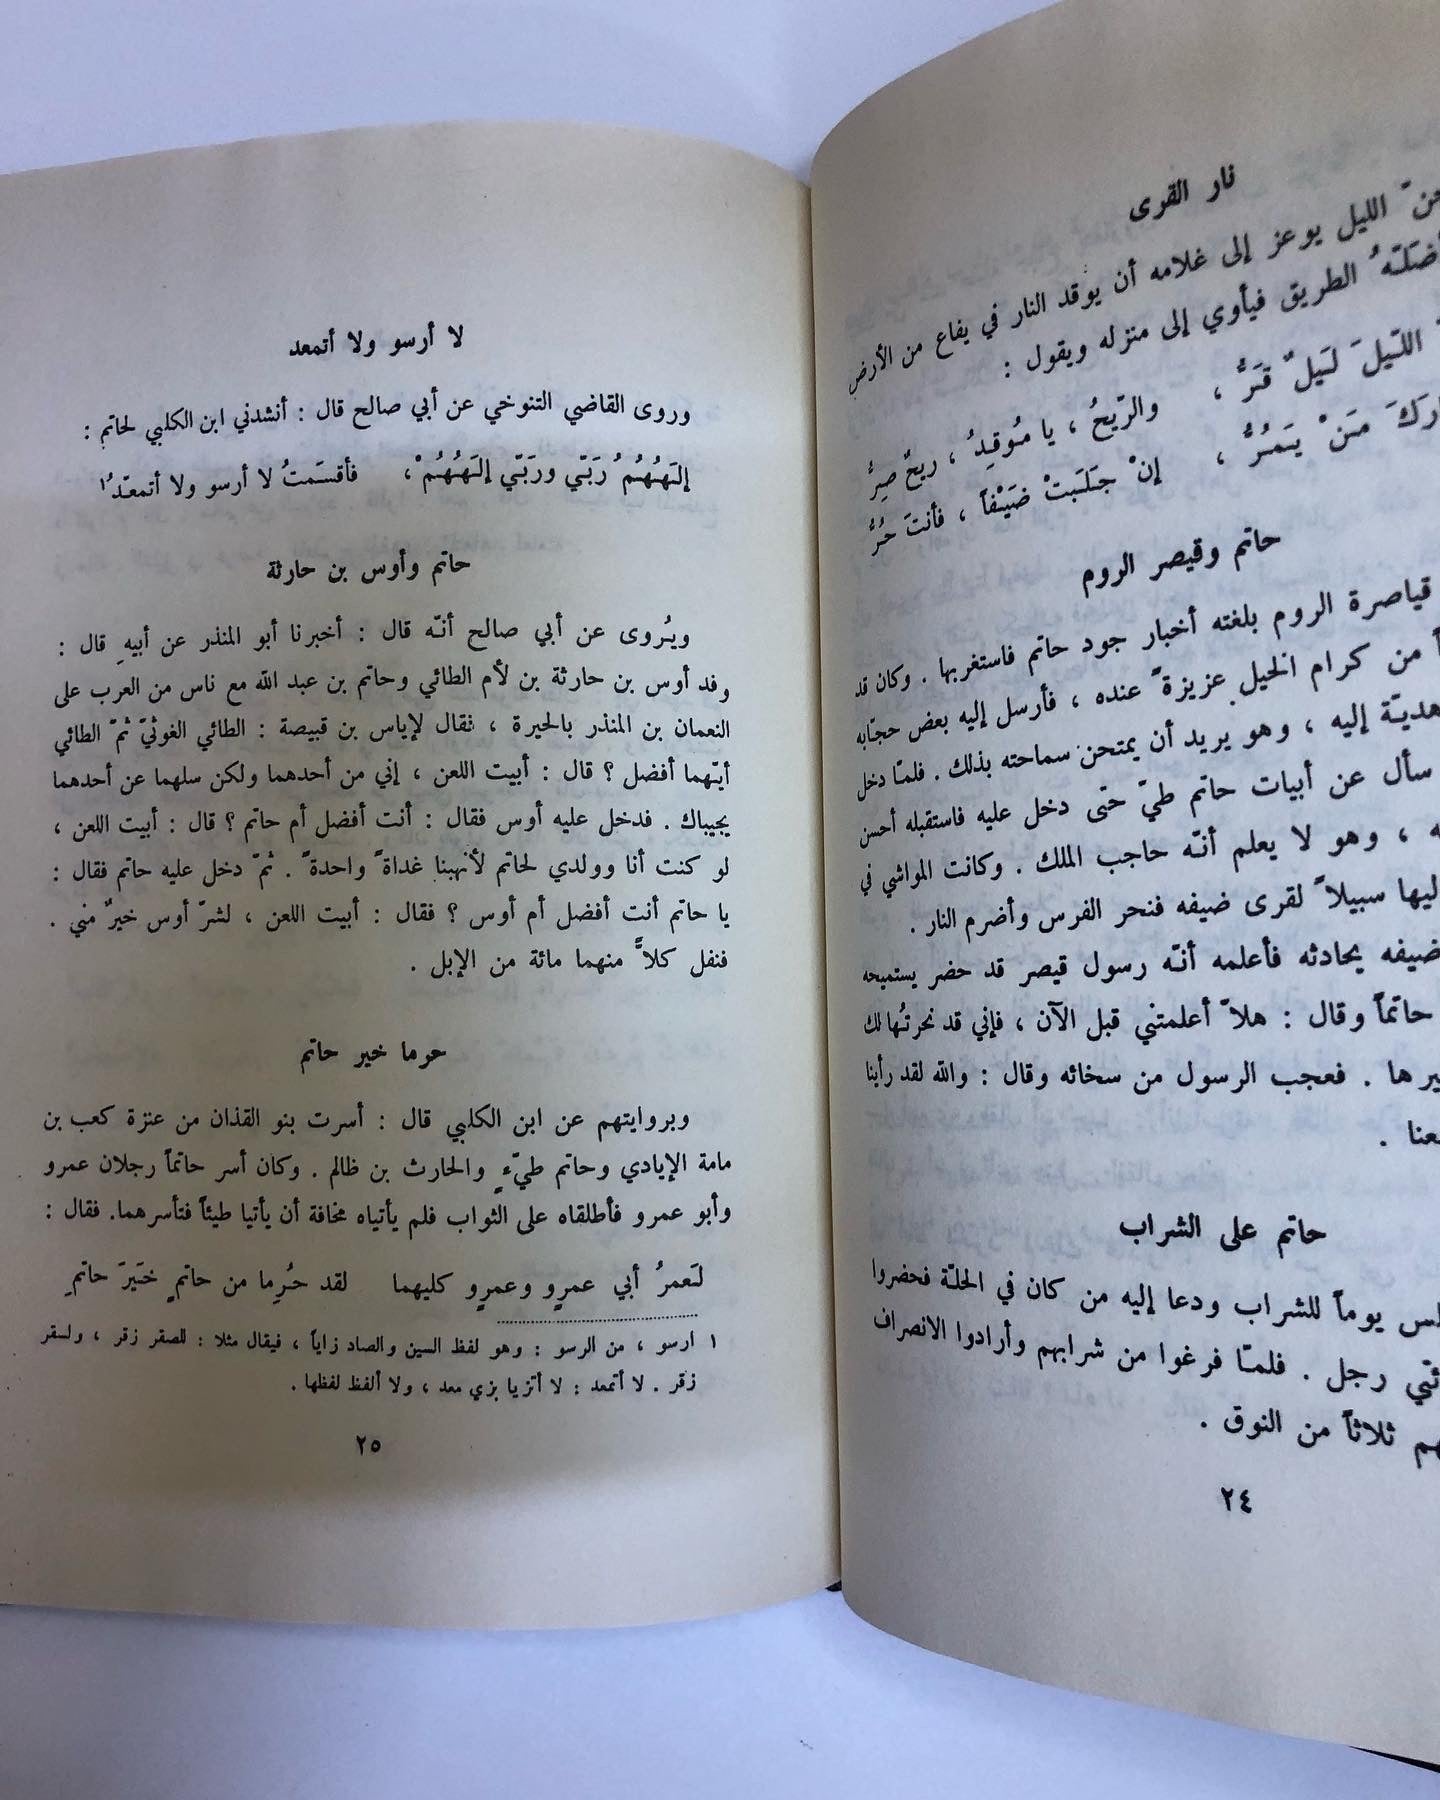 نار القرى
الليل يوعز إلى غلامه أن يوقد النار في يفاع من الأرض
الطريق فيأوي إلى منزله ويقول :
اللّيلَ لَيلٌ قَرُّ ، والرّيحُ ، يا مُوقِدُ ، ريحٌ صِرُّ
مَنْ يَمُرُّ ، إنْ جَلَبَتْ ضَيْفاً ، فأنتَ حُرُّ
حاتم وقيصر الروم
قياصرة الروم بلغته أخبار جود حاتم فاستغربها . وكان قد
من كرام الخيل عزيزةً عنده ، فأرسل إليه بعض حجّابه
إليه ، وهو يريد أن يمتحن سماحته بذلك . فلمّا دخل
سأل عن أبيات حاتم طيّ حتى دخل عليه فاستقبله أحسن
، وهو لا يعلم أنّه حاجب الملك . وكانت المواشي في
سبيلاً لقرى ضيفه فنحر الفرس وأضرم النار .
ضيفه يحادثه فأعلمه أنّه رسول قيصر قد حضر يستميحه
حاتماً وقال : هلاّ أعلمتني قبل الآن ، فإني قد نحرتُها لك
. فعجب الرسول من سخائه وقال : والله لقد رأينا
حاتم على الشراب
يوماً للشراب ودعا إليه من كان في الحلّة فحضروا
رجل . فلمّا فرغوا من شرابهم وأرادوا الانصراف
ثلاثاً من النوق .
٢٤
لا أرسو ولا أتمعد
وروى القاضي التنوخي عن أبي صالح قال : أنشدني ابن الكلبي لحاتم :
إلَهُهُمُ رَبّي ورَبّي إلَهُهُمْ ، فأقسَمتُ لا أرسو ولا أتمعّدُ١
حاتم وأوس بن حارثة
ويُروى عن أبي صالح أنّه قال : أخبرنا أبو المنذر عن أبيهِ قال :
وفد أوس بن حارثة بن لأم الطائي وحاتم بن عبد الله مع ناس من العرب على
النعمان بن المنذر بالحيرة ، فقال لإياس بن قبيصة : الطائي الغوثيّ ثمّ الطائي
أيّهما أفضل ؟ قال : أبيت اللعن ، إني من أحدهما ولكن سلهما عن أحدهما
يجيباك . فدخل عليه أوس فقال : أنت أفضل أم حاتم ؟ قال : أبيت اللعن ،
لو كنت أنا وولدي لحاتم لأنهبنا غداةً واحدةً . ثمّ دخل عليه حاتم فقال :
يا حاتم أنت أفضل أم أوس ؟ فقال : أبيت اللعن ، لشرّ أوس خيرٌ مني .
فنفل كلاًّ منهما مائة من الإبل .
حرما خير حاتم
وبروايتهم عن ابن الكلبي قال : أسرت بنو القذان من عنزة كعب بن
مامة الإيادي وحاتم طيّءٍ والحارث بن ظالم . وكان أسر حاتماً رجلان عمرو
وأبو عمرو فأطلقاه على الثواب فلم يأتياه مخافة أن يأتيا طيئاً فتأسرهما. فقال :
لَعمرُ أبي عمرٍو وعمرٍو كليهما لقد حُرِما من حاتمٍ خَيرَ حاتمِ
١ ارسو ، من الرسو : وهو لفظ السين والصاد زاياً ، فيقال مثلا : للصقر زقر ، ولسقر
زقر . لا أتمعد : لا أتزيا بزي معد ، ولا ألفظ لفظها .
٢٥